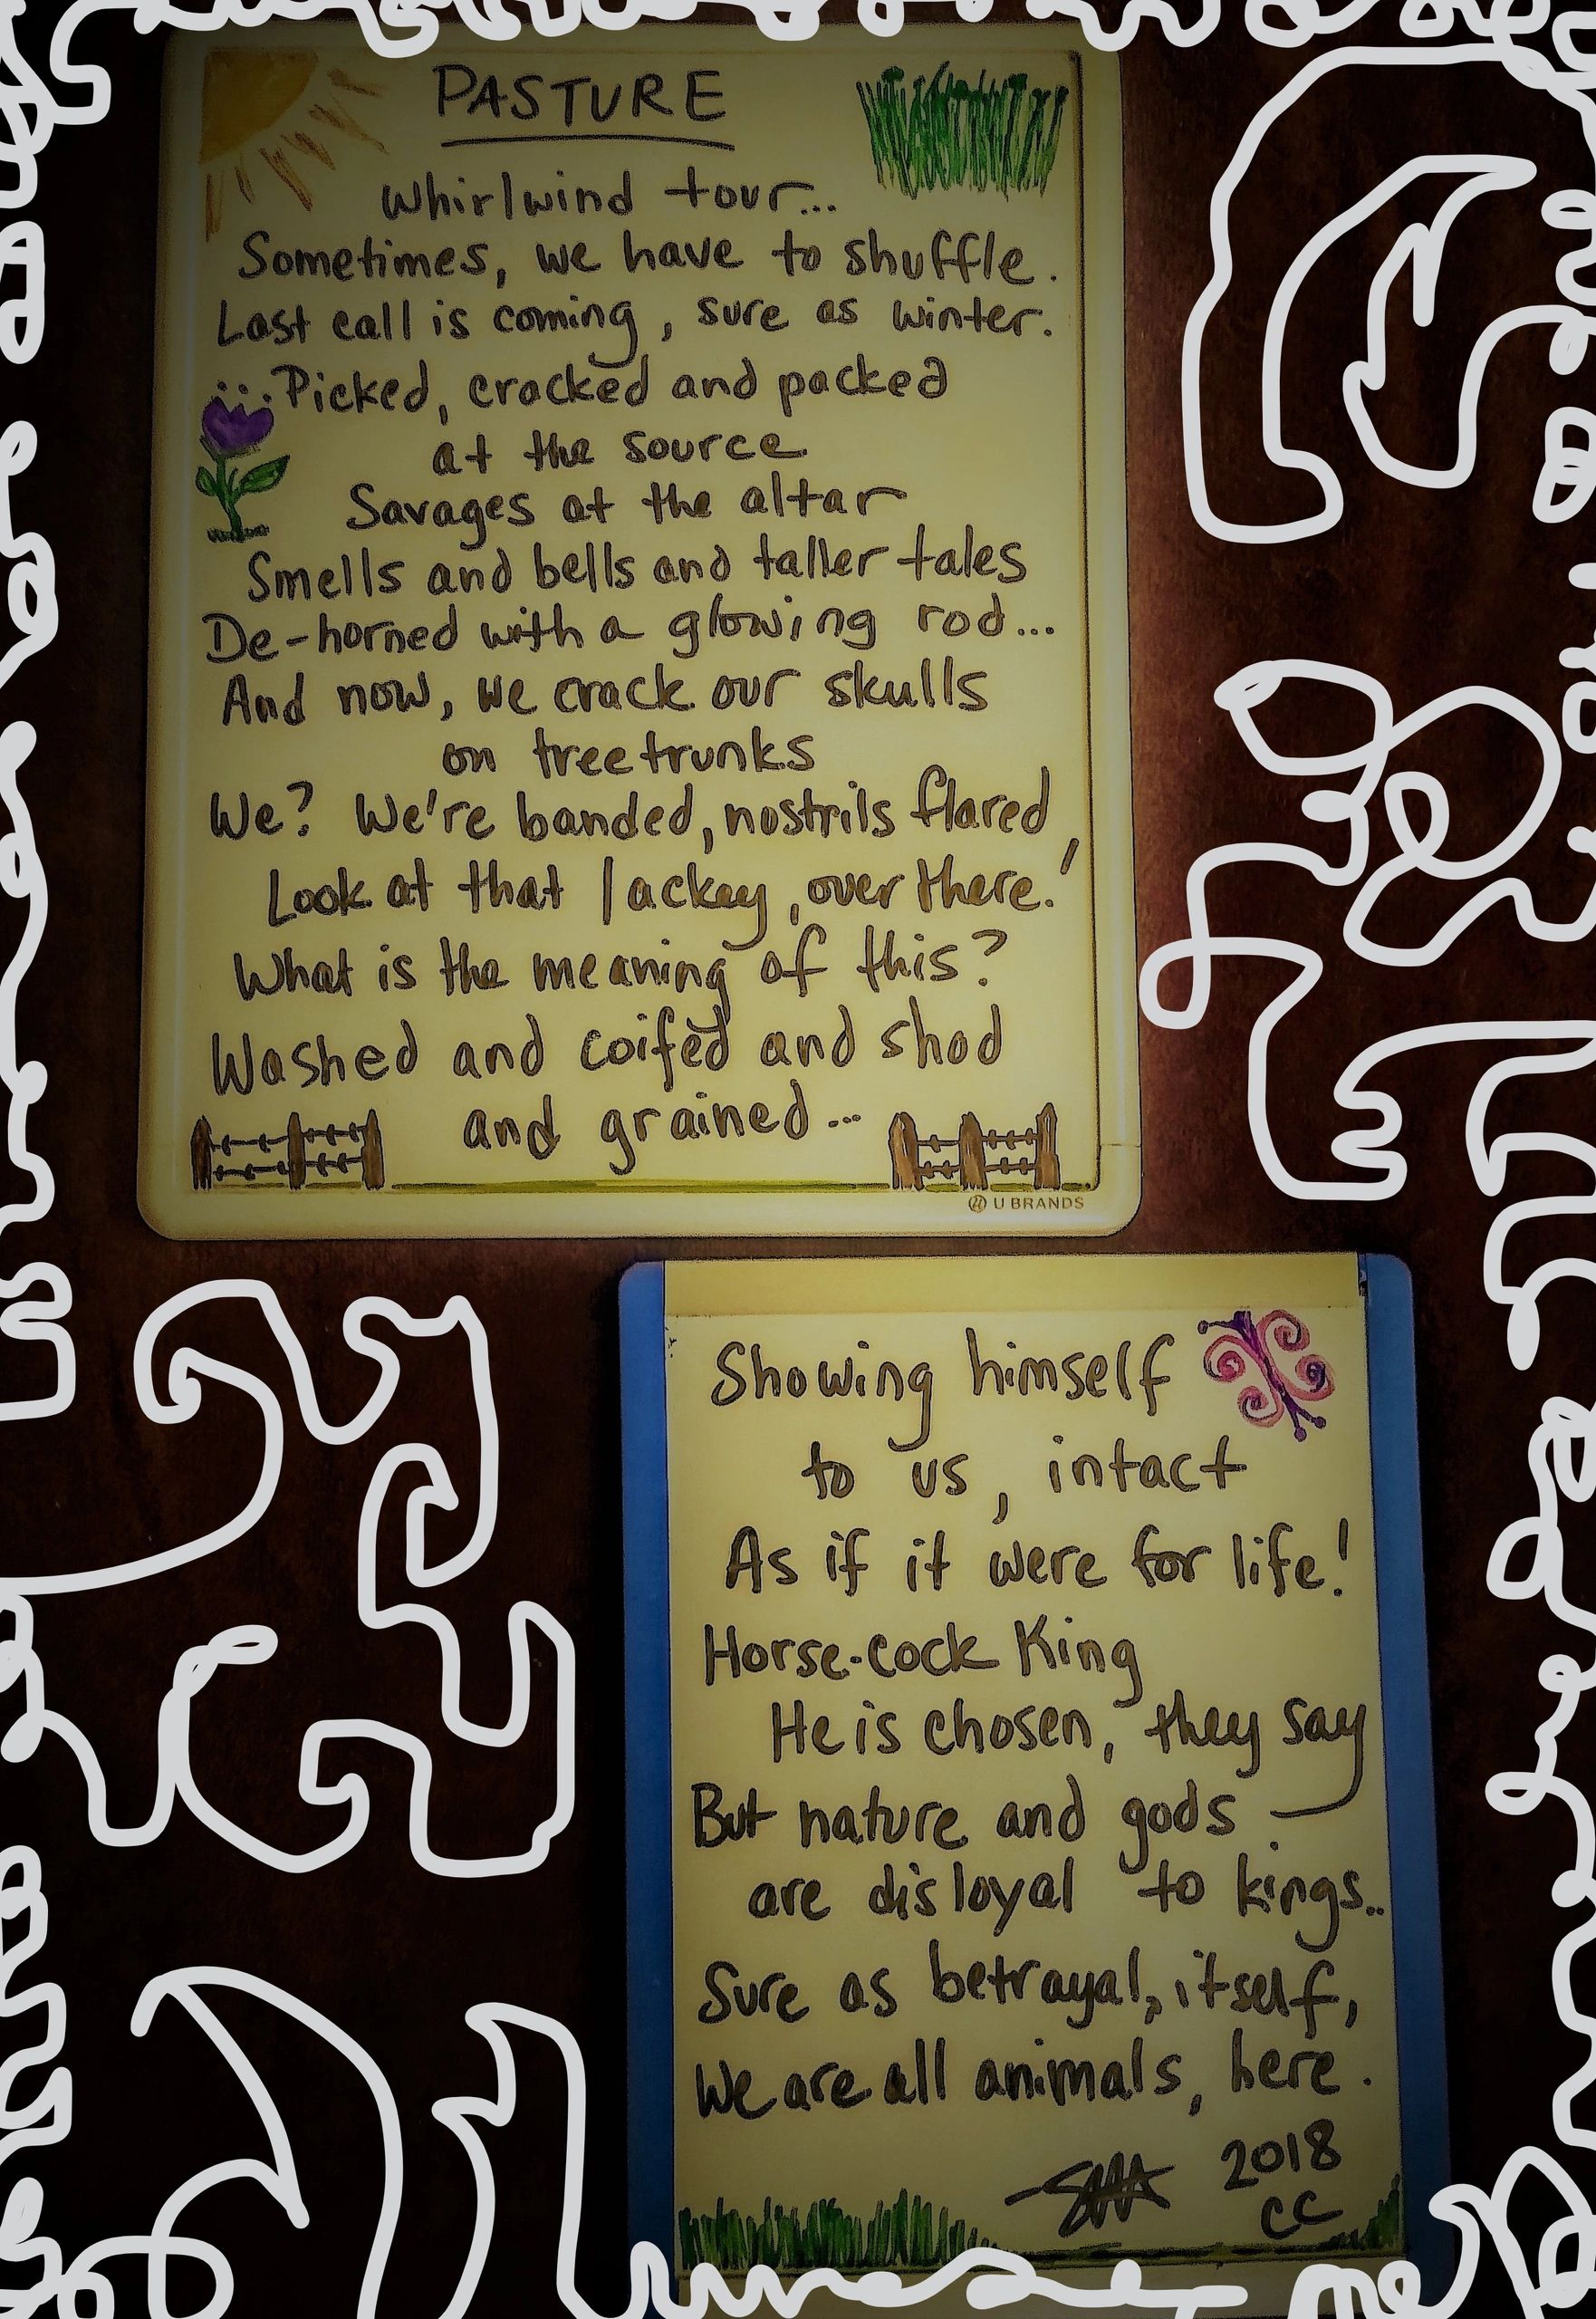 PASTURE
Whirlwind tour...
Sometimes, we have to shuffle.
Last call is coming, sure as winter.
...Picked, cracked and packed
at the source
Savages at the altar
Smells and bells and taller tales
De-horned with a glowing rod...
And now, we crack our skulls
on tree trunks
We? We're banded, nostrils flared,
Look at that lackey, over there!
What is the meaning of this?
Washed and coifed and shod
and grained...
U BRANDS
Showing himself
to us, intact
As if it were for life!
Horse-cock King
He is chosen, they say
But nature and gods
are disloyal to kings..
Sure as betrayal, itself,
We are all animals, here.
2018
CC